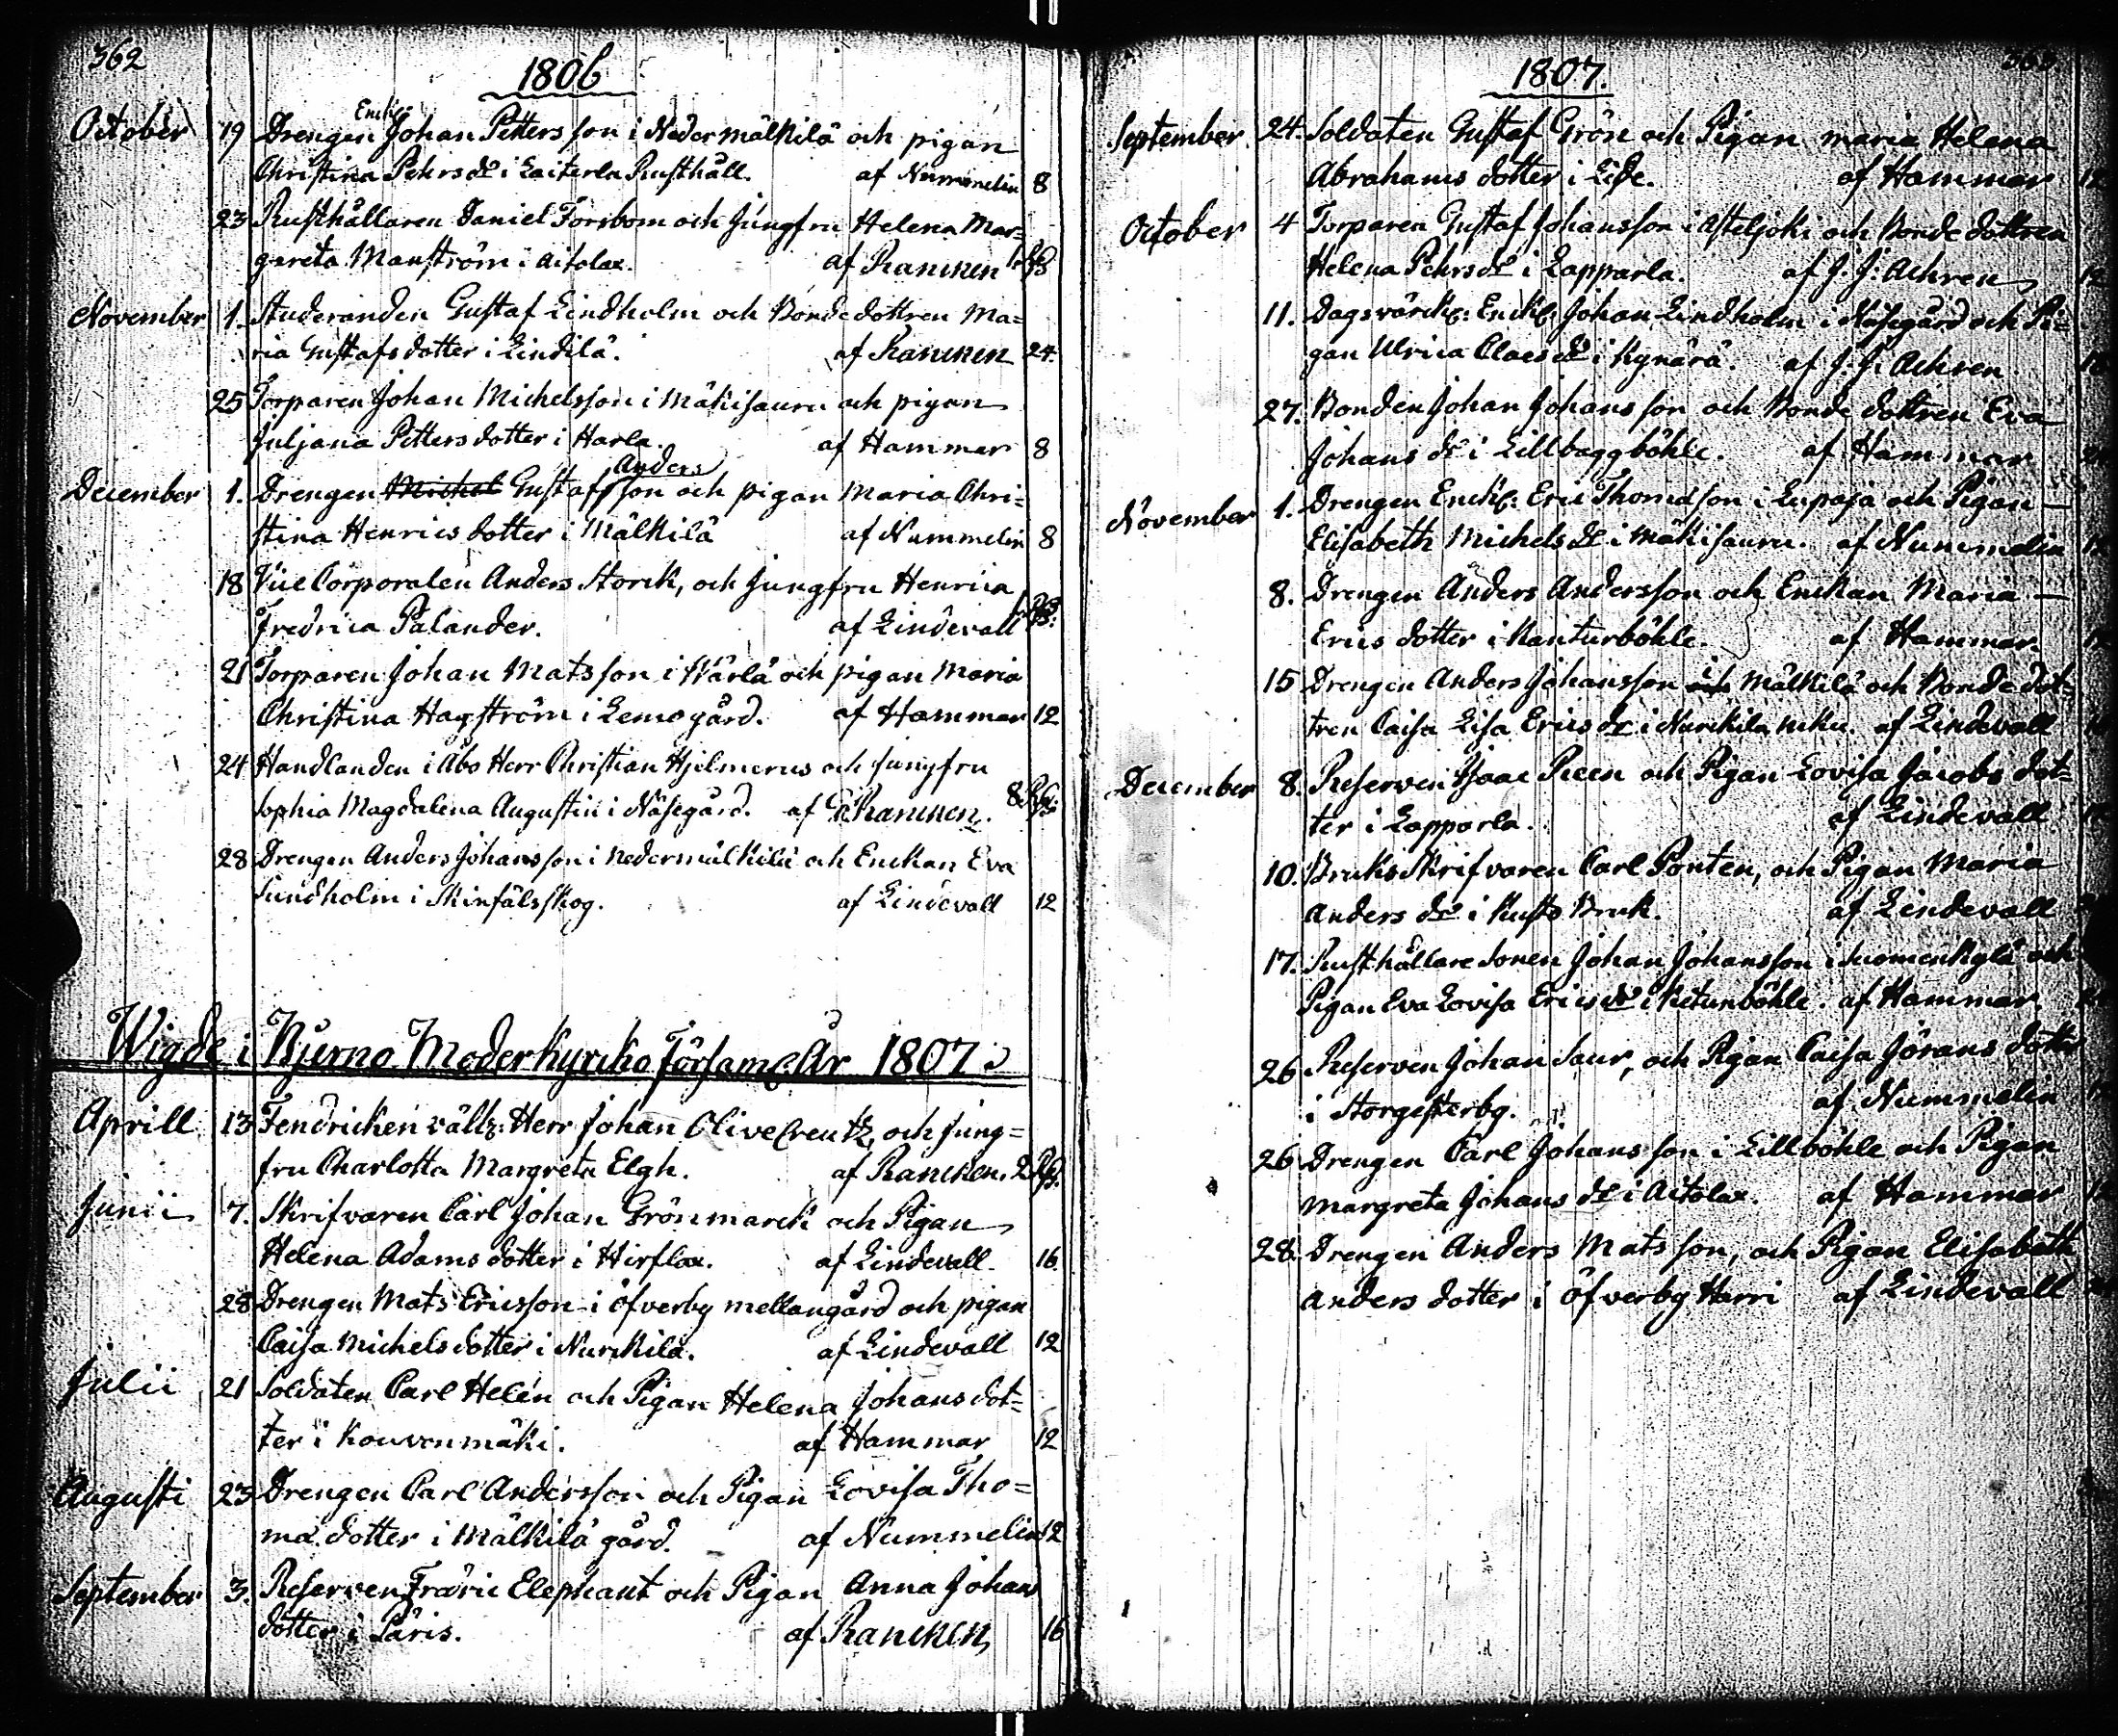 362
1806
October 19 Drengen Enckl. Johan Petters son i Nedermälkilä och pigan
Christina Pehrs dr i Laiterla Rusthåll. af Nummelin 8
23 Rusthållaren Daniel Forsbom och Jungfru Helena Mar=
gareta Manström i Aitolax. af Rancken
November 1. Studeranden Gustaf Lindholm och Bondedottren Ma=
ria Gustafsdotter i Lindilä. af Rancken 24.
25 Torparen Johan Michelsson i Mäkisauru och pigan
Juljana Pettersdotter i Harla. af Hammar 8
December 1. Drengen Michel Gustafsson Anders och pigan Maria Chri=
stina Henricsdotter i Mälkilä af Nummelin 8
18 Vice Corporalen Anders Storck, och Jungfru Henrica
Fredrica Palander. af Lindevall
21 Torparen Johan Matsson i Wärlä och pigan Maria
Christina Hagström i Lemogård. af Hammar 12
24 Handlanden i Åbo Herr Christian Hjelmerus och jungfru
Sophia Magdalena Augustin i Näsegård. af Rancken.
28 Drengen Anders Johansson i Nedermälkilä och Enckan Eva
Sundholm i Skinfälsskog. af Lindevall 12
Wigde i Bjerno Moderkyrcko Församl. År 1807.
Aprill 13 Fendricken välb: Herr Johan Olivecreutz, och Jung=
fru Charlotta Margreta Elgh. af Rancken. 2
Junii 7. Skrifvaren Carl Johan Grönmarck och Pigan
Helena Adamsdotter i Hirflax. af Lindevall. 16
28 Drengen Mats Ericsson i Öfverby mellangård och pigan
Caisa Michelsdotter i Nurckila. af Lindevall 12
Julii 21 Soldaten Carl Helén och Pigan Helena Johansdot=
ter i Kouvenmäki. af Hammar 12
Augusti 23 Drengen Carl Andersson och Pigan Lovisa Tho=
mæ dotter i Mälkilä gård. af Nummelin 12
September 3. Reserven Fredric Elephant och Pigan Anna Johans
dotter i Päris. af Rancken 16
363
1807.
September 24. Soldaten Gustaf Grön och Pigan Maria Helena
Abrahams dotter i Lide. af Hammar 12
October 4 Torparen Gustaf Johansson i Asteljoki och Bonde dottren
Helena Pehrs dr i Lapparla. af J. J: Achren 12
11. Dagsvärckl: Enckl: Johan Lindholm i Näsegård och Pi=
gan Ulrica Claes dr i Kynärä. af J. J. Achren
27. Bonden Johan Johansson och Bonde dottren Eva
Johans dr i Lillbaggböhle. af Hammar
November 1. Drengen Enckl: Eric Thomasson i Lupaja och Pigan
Elisabeth Michels dr i Mäkisauru. af Nummelin
8. Drengen Anders Andersson och Enckan Maria
Erics dotter i Kanturböhle. af Hammar.
15 Drengen Anders Johansson och i Mälkilä och Bonde dot=
tren Caisa Lisa Erics dr i Nurckila Uku. af Lindevall
December 8. Reserven Isaac Reen och Pigan Lovisa Jacobs dot=
ter i Lapparla. af Lindevall
10. Bruks Skrifvaren Carl Ponten, och Pigan Maria
Anders dr i Kusto Bruk. af Lindevall
17. Rusthållare Sonen Johan Johansson i Suomenkylä och
Pigan Eva Lovisa Erics dr i Ketunböhle. af Hammar
26 Reserven Johan Saur, och Pigan Caisa Jörans dotter
i Storgesterby. af Nummelin
26 Drengen Carl Johansson i Lillböhle och Pigan
Margreta Johans dr i Aitolax. af Hammar
28 Drengen Anders Matsson, och Pigan Elisabeth
Anders dotter i Öfverby Harri af Lindevall